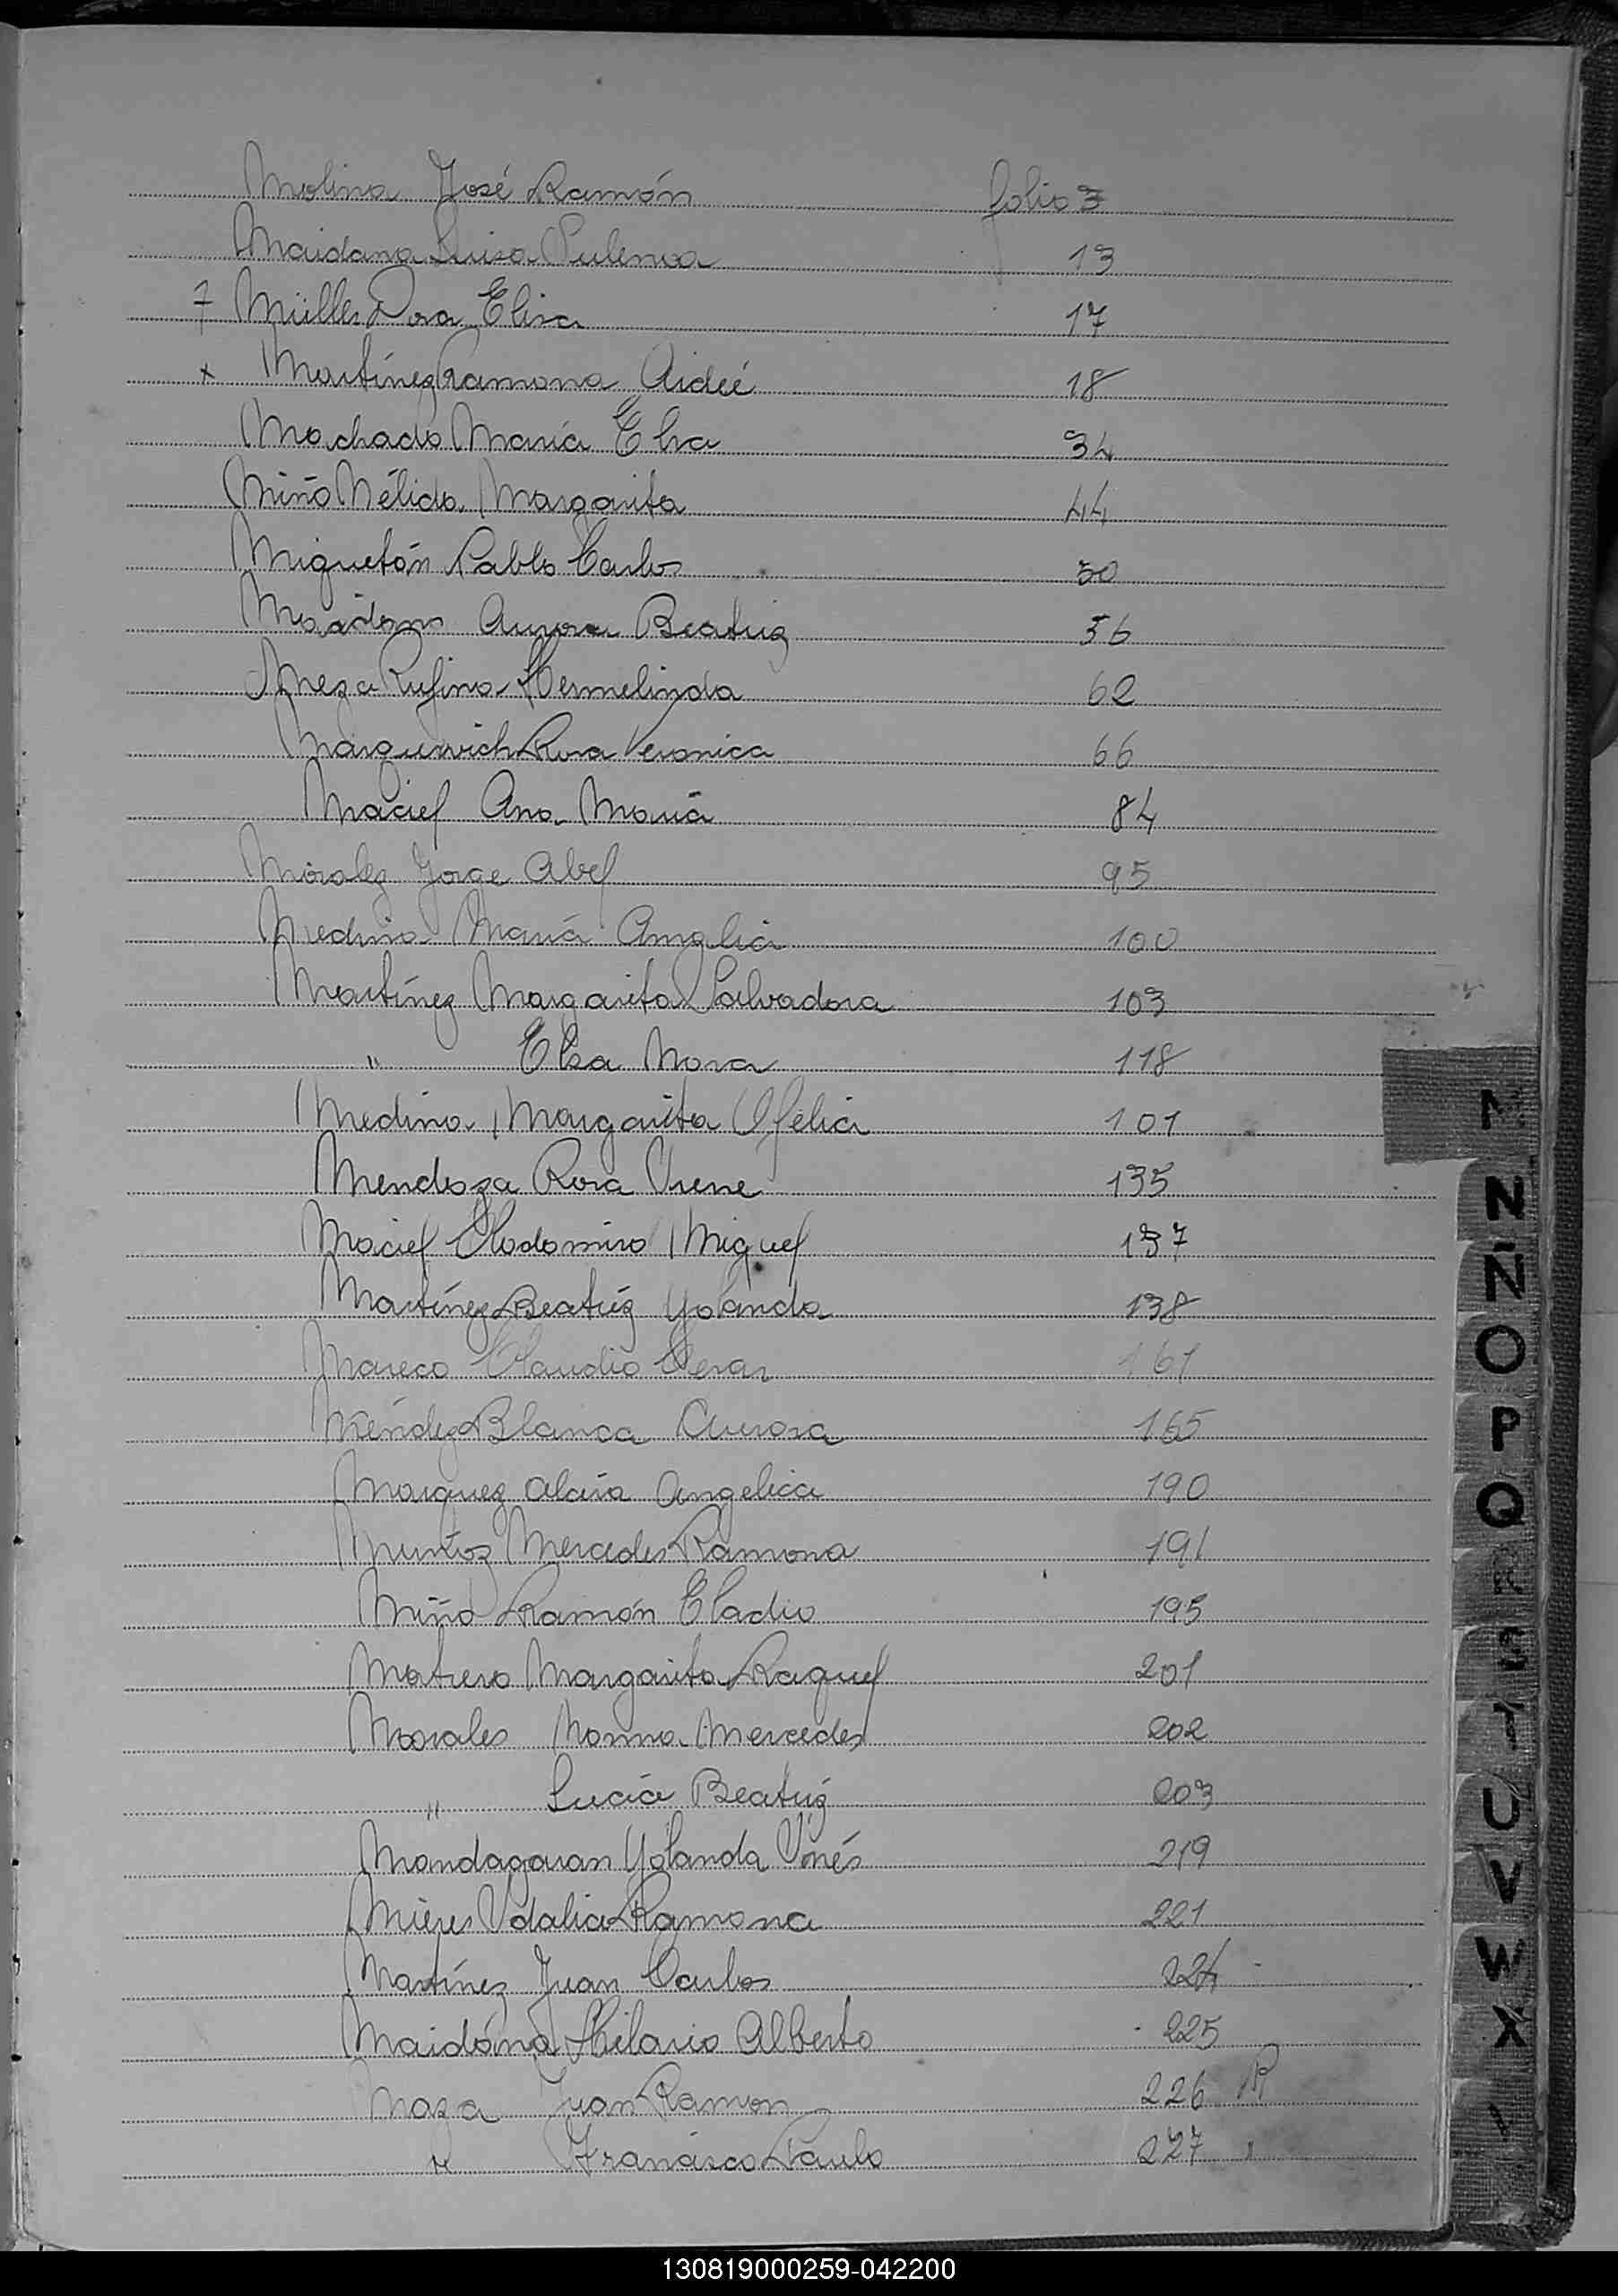 Molina José Ramón folio 3
Maidana Luisa Pulenia 13
7 Müller Dora Elisa 17
x Martínez Ramona Aideé 18
Machado María Elva 34
Miño Nélida Margarita 44
Miguetón Pablo Carlos 50
Maidana Aurora Beatriz 56
Meza Rufina Hermelinda 62
Rosa Veronica 66
Maciel Ana María 84
Moralez Jorge Abel 95
Medina María Amalia 100
Martínez Margarita Salvadora 103
" Elsa Nora 118
Medina Margarita Ofelia 101
Mendoza Rosa Irene 135
Maciel Clodomiro Miguel 137
Martínez Beatríz Yolanda 138
Mareco Claudio Cesar 161
Méndez Blanca Aurora 165
Marquez Alcira Angelica 190
Muñoz Mercedes Ramona 191
Miño Ramón Eladio 195
Matiero Margarita Raquel 201
Morales Norma Mercedes 202
" Lucía Beatríz 203
Mondagaran Yolanda Inés 219
Mieres Odalia Ramona 221
Martínez Juan Carlos 224
Maidana Hilario Alberto 225
Maza Juan Ramon 226 R
" Francisco Paulo 227 "
M
N
Ñ
O
P
Q
R
S
T
U
V
W
X
130819000259-042200